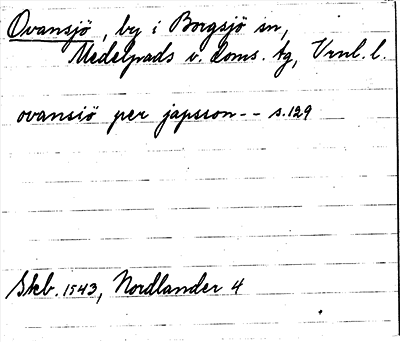 Ovansjö, by i Borgsjö sn,
Medelpads v. doms. tg, Vrnl. l.
ovansiö per japsson -- s. 129
Skb. 1543, Nordlander 4